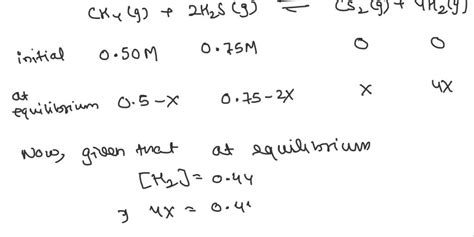 CH4(g) + 2H2S(g) ⇌ CS2(g) + 4H2(g)
initial 0.50M 0.75M 0 0
at
equilibrium 0.5-x 0.75-2x x 4x
Now, given that at equilibrium
[H2] = 0.44
⇒ 4x = 0.44